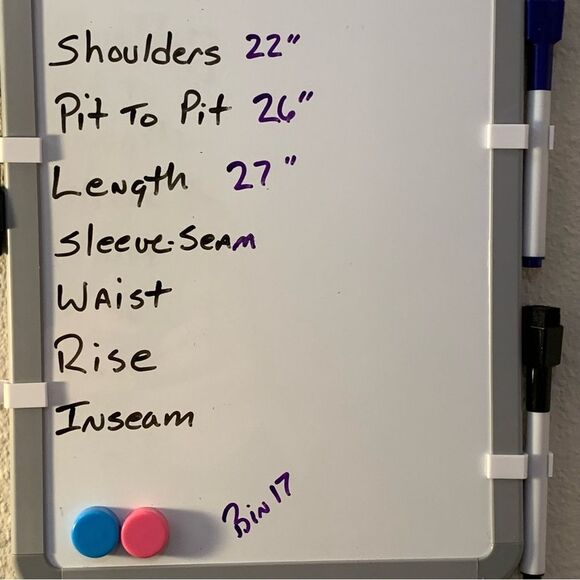 Shoulders 22"
Pit To Pit 26"
Length 27"
Sleeve-Seam
Waist
Rise
Inseam
Bin 17